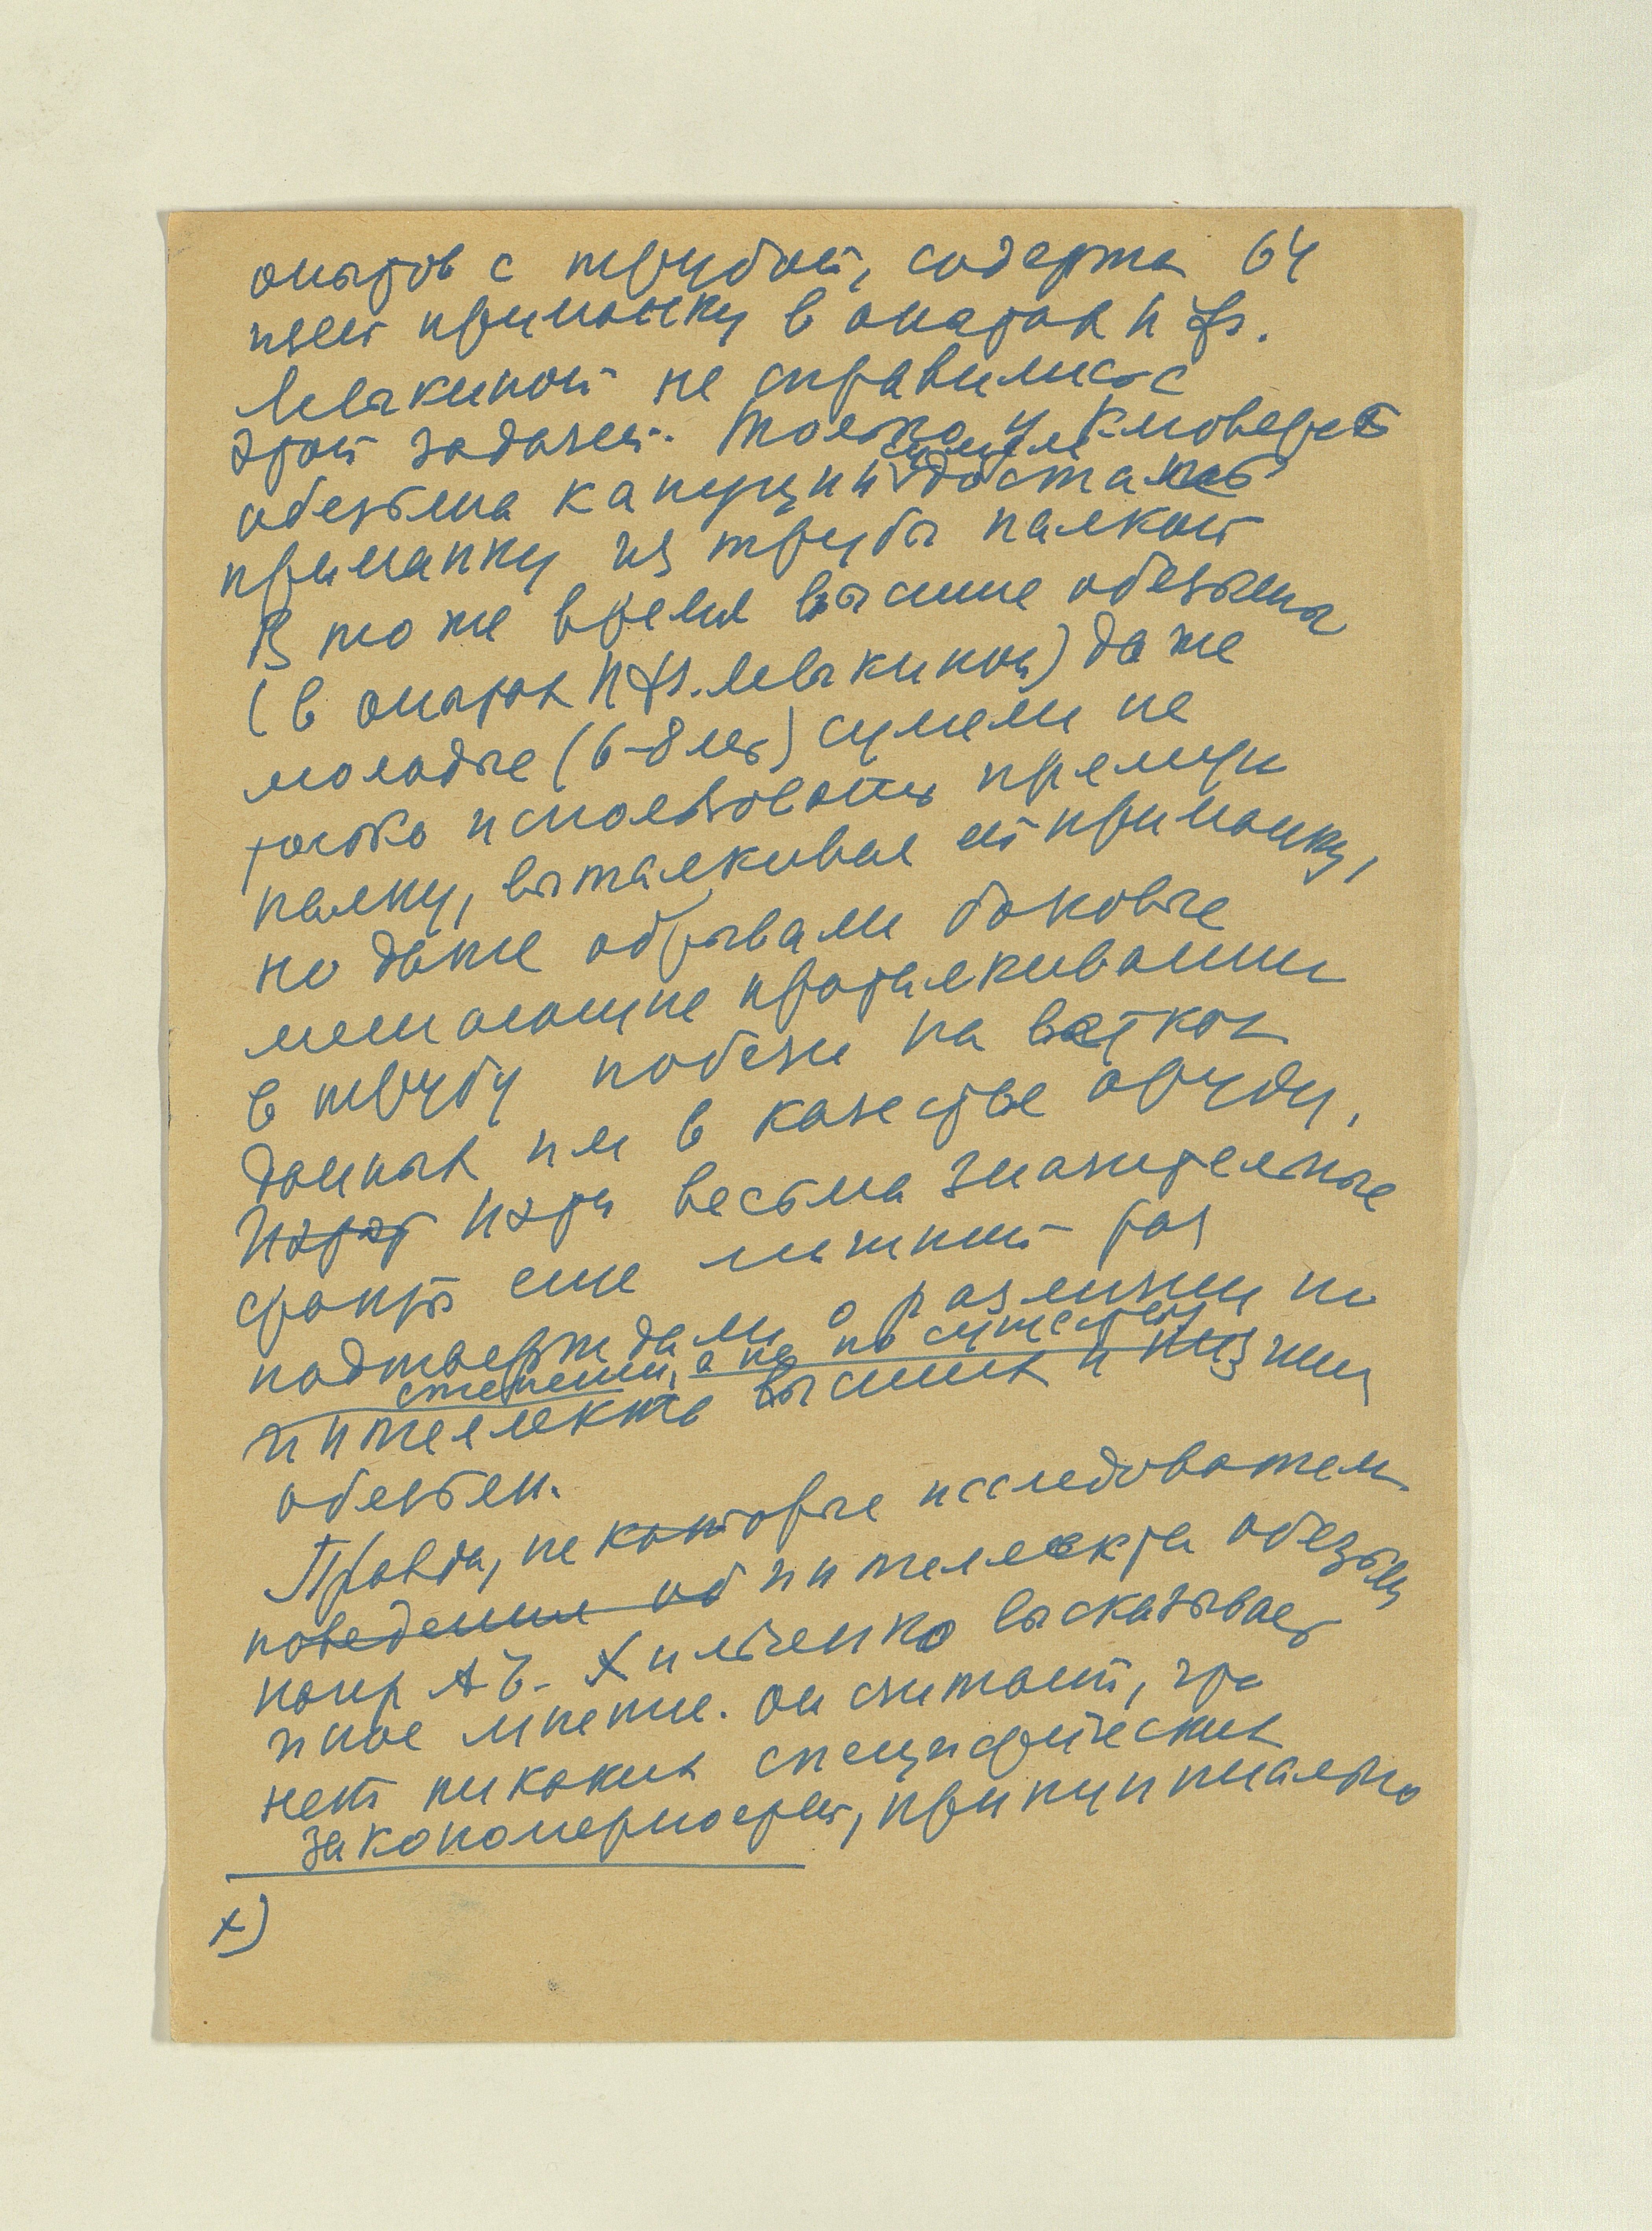 опытов с трубой, содержа 64
щей приманку в опытах Н Ф.
Левыкиной не справились с
этой задачей. Только у Клювера
обезьяна капуцин сумела достать
приманку из трубы палкой
В то же время высшие обезьяны
(в опытах Н Ф. Левыкиной) даже
молодые (6-8 лет) сумели не
только использовать прямую
палку, выталкивая ей приманку,
но даже обрывали боковые
мешающие проталкиванию
в трубу побеги на ветках
данных им в качестве орудия,
И эти весьма значительные
факты еще лишний раз
подтверждали о различии по
степени, а не по существу
интеллекта высших и низших
обезьян.
Правда, некоторые исследователи
поведения об интеллекта обезьян
напр А З. Хильченко высказывает
иное мнение. Он считает, что
нет никаких специфических
закономерностей, принципиально
х)